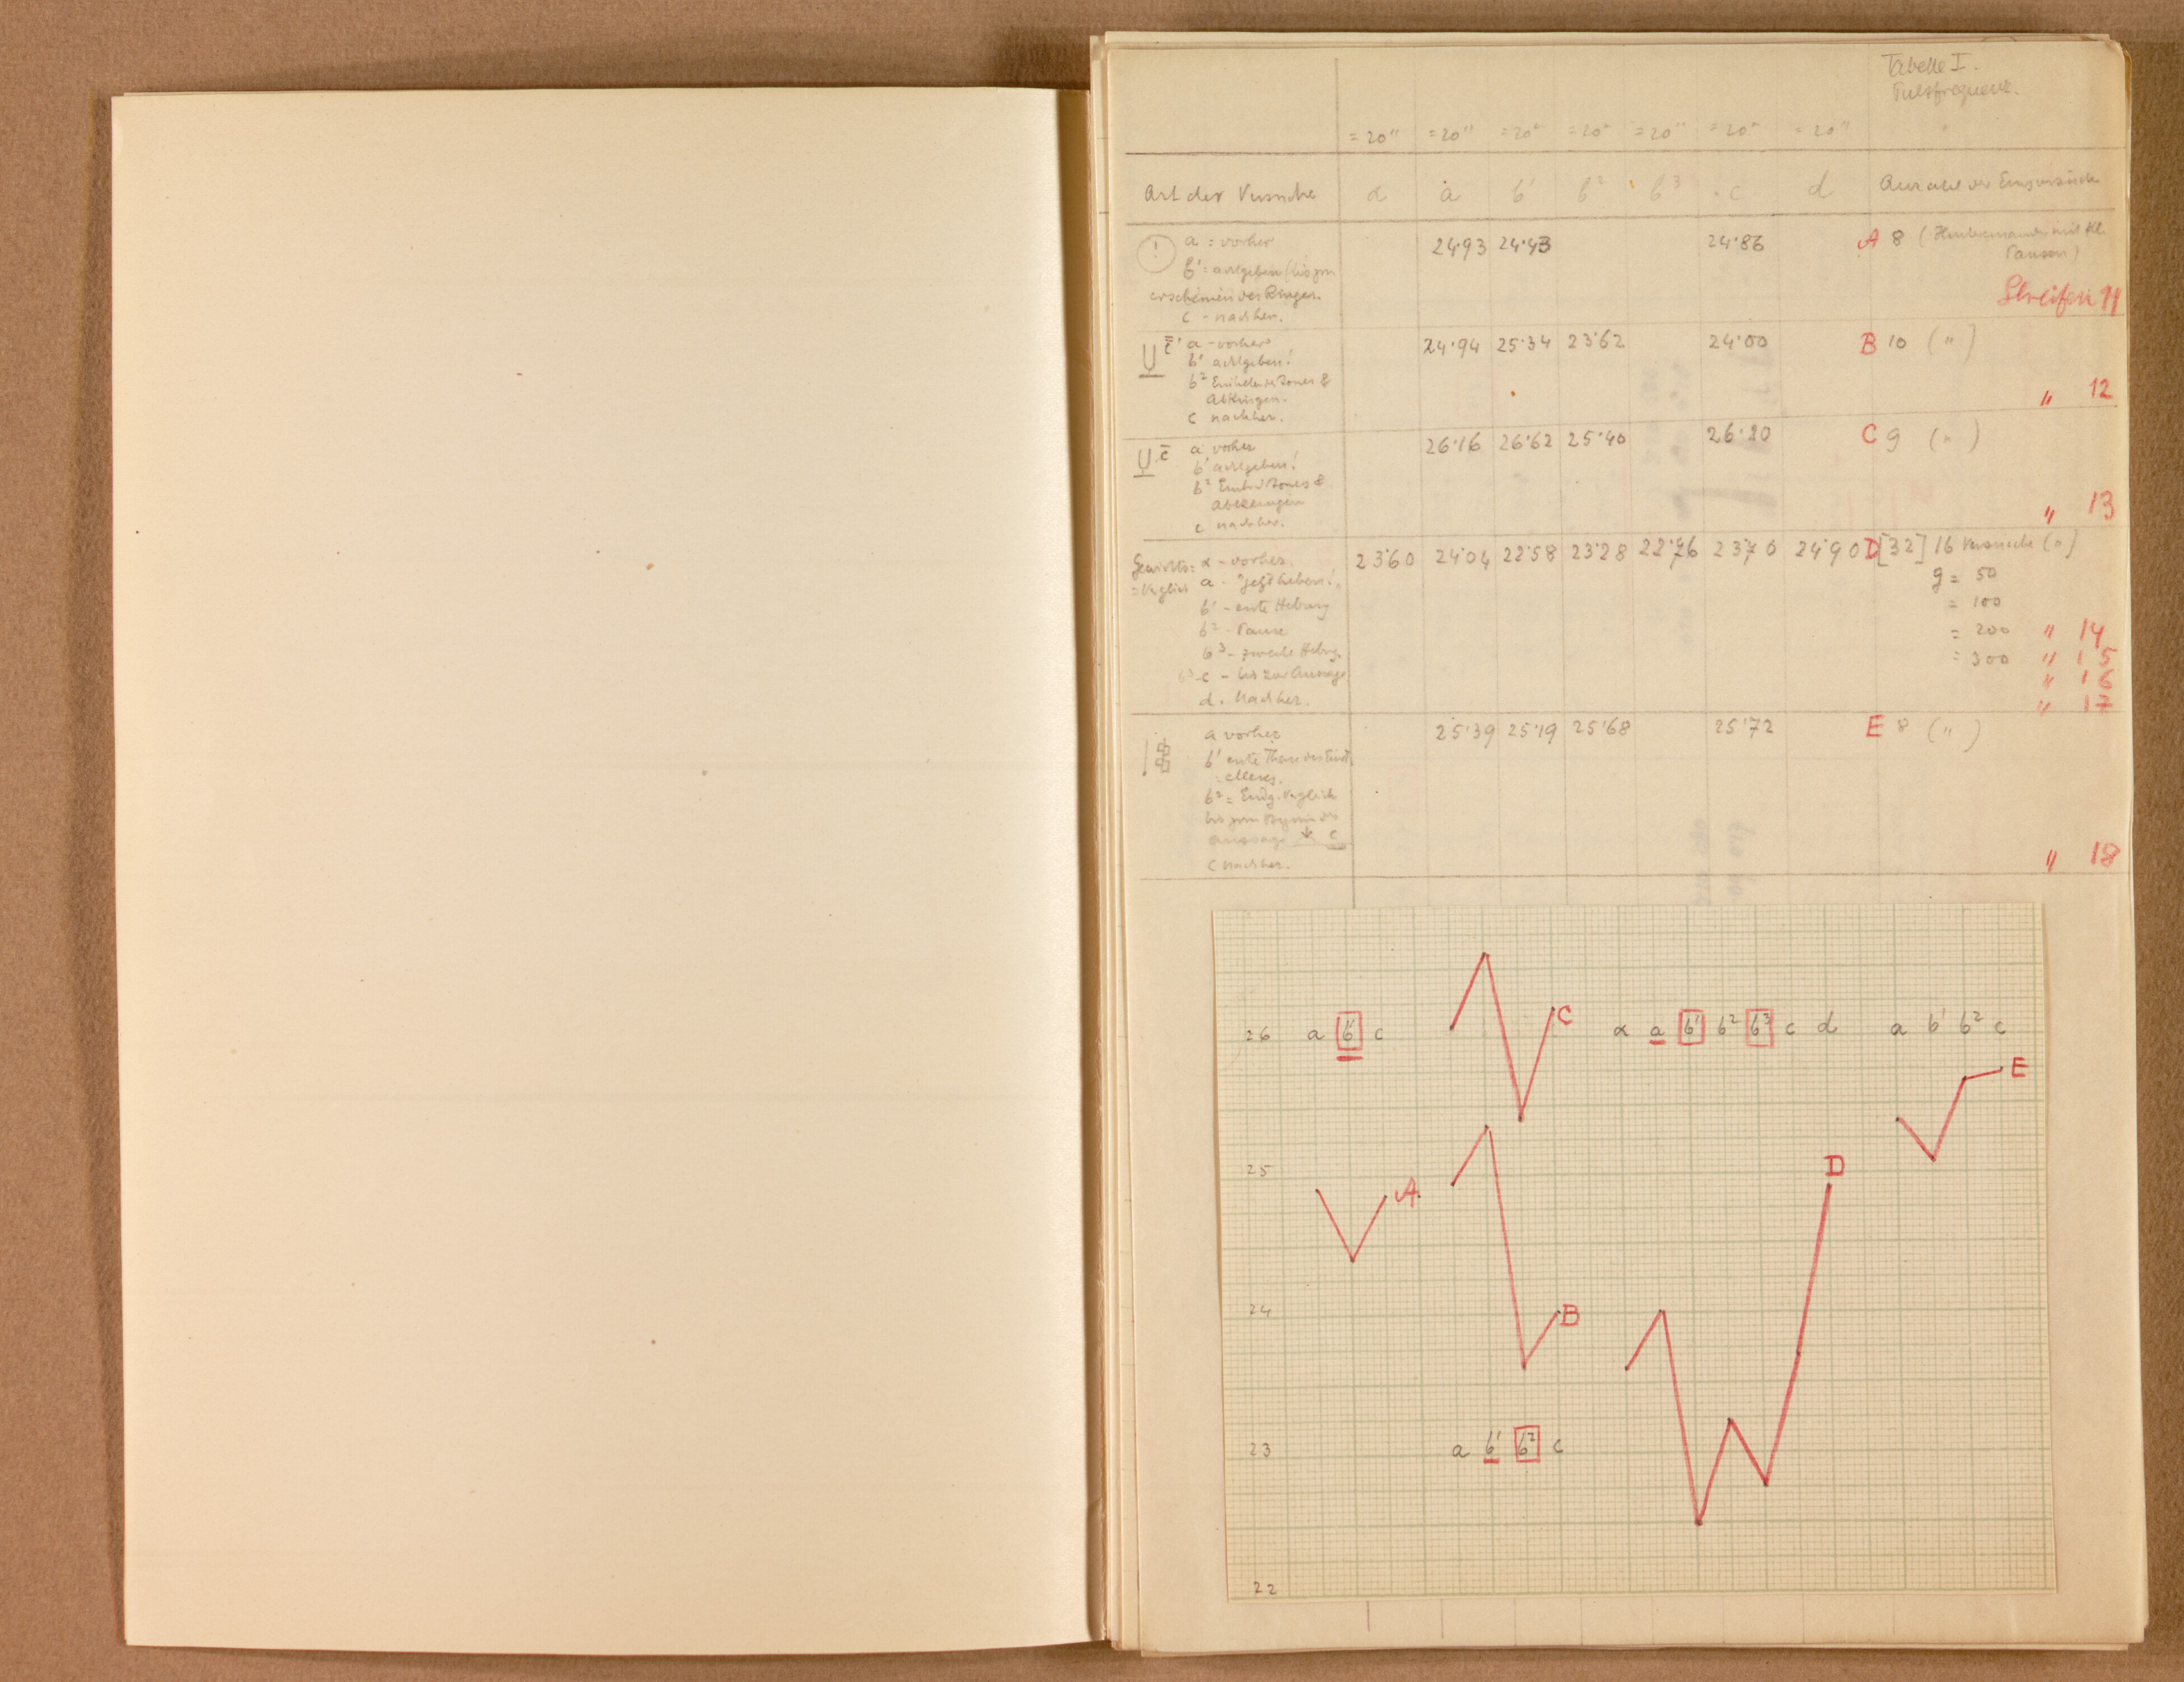 Tabelle I.
Pulsfrequenz.
= 20" = 20" = 20" = 20" = 20" = 20" = 20"
Art der Versuche α a b¹ b² b³ c d Anzahl der Einzelversuche
! a = vorher 24·93 24·43 24·86 A 8 (Hintereinander mit kl.
b¹ = achtgeben (bis zum Pausen)
erscheinen des Ringes.
c - nachher. Streifen 11
U c̿ a - vorher 24·94 25·34 23·62 24·00 B 10 (")
b¹ achtgeben!
b² Tones &
Abklingen.
c nachher. " 12
U c̄ a vorher 26·16 26·62 25·40 26·20 C 9 (")
b¹ achtgeben!
b² Tones &
Abklingen
c nachher. " 13
Gewichts= α - vorher. 23·60 24·04 22·58 23·28 22·76 23·70 24·90 D [32] 16 Versuche (")
=Vergleich a - "Jetzt heben!" g = 50
b¹ - erste Hebung = 100
b² - Pause = 200 " 14
b³ - zweite Hebung. = 300 " 15
c - bis zur Aussage " 16
d. Nachher. " 17
a vorher 25·39 25·19 25·68 25·72 E 8 (")
b¹ erste Phase des
b² = Vergleich
bis zum Beginn der
Aussage c
c nachher. " 18
C
26 a b¹ c α a b¹ b² b³ c d a b¹ b² c
E
25 D
A
24 B
23 a b¹ b² c
22